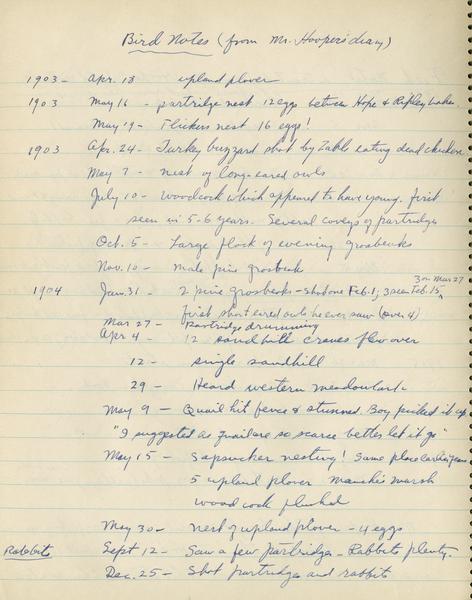 Bird Notes (from Mr. Hooper's diary)
1903 - Apr. 18 upland plover
1903 May 16 - partridge nest 12 eggs between Hope & Ripley Lakes.
May 19 - Flickers nest 16 eggs!
1903 Apr. 24 - Turkey buzzard shot by eating dead chickens
May 7 - nest of long-eared owls
July 10 - Woodcock which appeared to have young. First
seen in 5-6 years. Several coveys of partridges
Oct. 5 - Large flock of evening grosbeaks
Nov. 10 - male pine grosbeak
3 on Mar 27
1904 Jan. 31 - 2 pine grosbeaks - shot one Feb. 1; 3 seen Feb. 15
first short eared owls he ever saw (over 4)
Mar 27 - Partridge drumming
Apr 4 - 12 sandhill cranes flew over
12 - single sandhill
29 - Heard western meadowlark
May 9 - Quail hit fence & stunned. Boy picked it up
"I suggested as quail are so scarce better let it go"
May 15 - Sapsucker nesting! Same place earlier years
5 upland plover marsh
woodcock flushed
May 30 - nest of upland plover - 4 eggs
Rabbits Sept 12 - Saw a few partridges - Rabbits plenty.
Dec. 25 - Shot partridges and rabbits